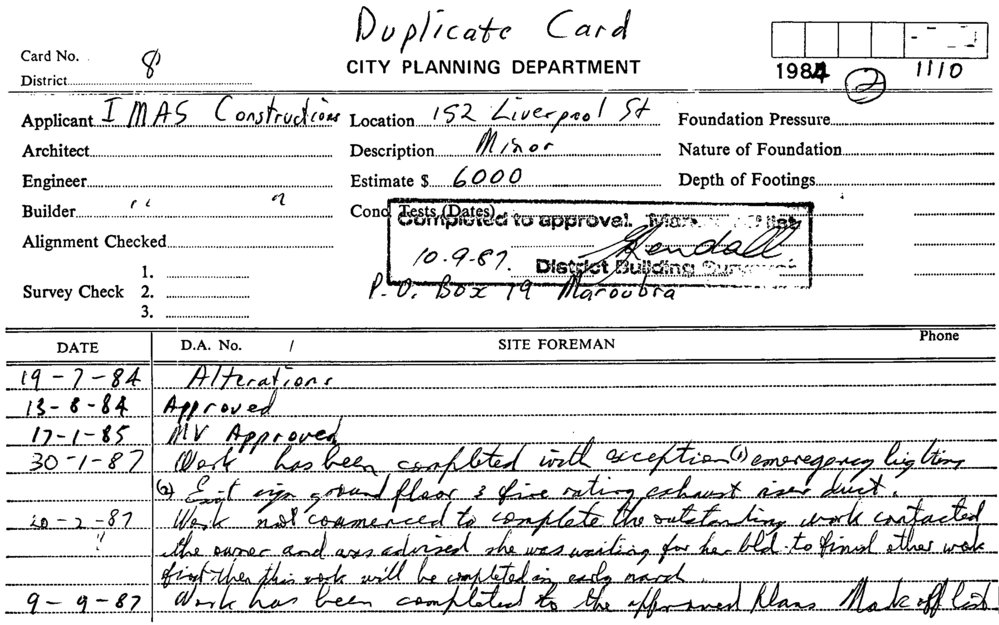 Duplicate Card
Card No. 8
CITY PLANNING DEPARTMENT
District
1984 2 1110
Applicant IMAS Constructions Location 152 Liverpool St Foundation Pressure
Architect Description Minor Nature of Foundation
Engineer Estimate $ 6000 Depth of Footings
Builder " " Cond Tests (Dates)
Completed to approval. list
Alignment Checked
10.9.87. Kendall
District Building Surveyor
P.O. Box 19 Maroubra
1.
Survey Check 2.
3.
DATE D.A. No. / SITE FOREMAN Phone
19-7-84 Alterations
13-8-84 Approved
17-1-85 MV Approved
30-1-87 Work has been completed with exception (1) emeregency lighting
(2) Exit sign ground floor & fire rating exhaust riser duct.
20-2-87 Work not commenced to complete the outstanding work contacted
" the owner and was advised she was waiting for her bld. to finish other work
first then this work will be completed in early march.
9-9-87 Work has been completed to the approved plans Mark off list